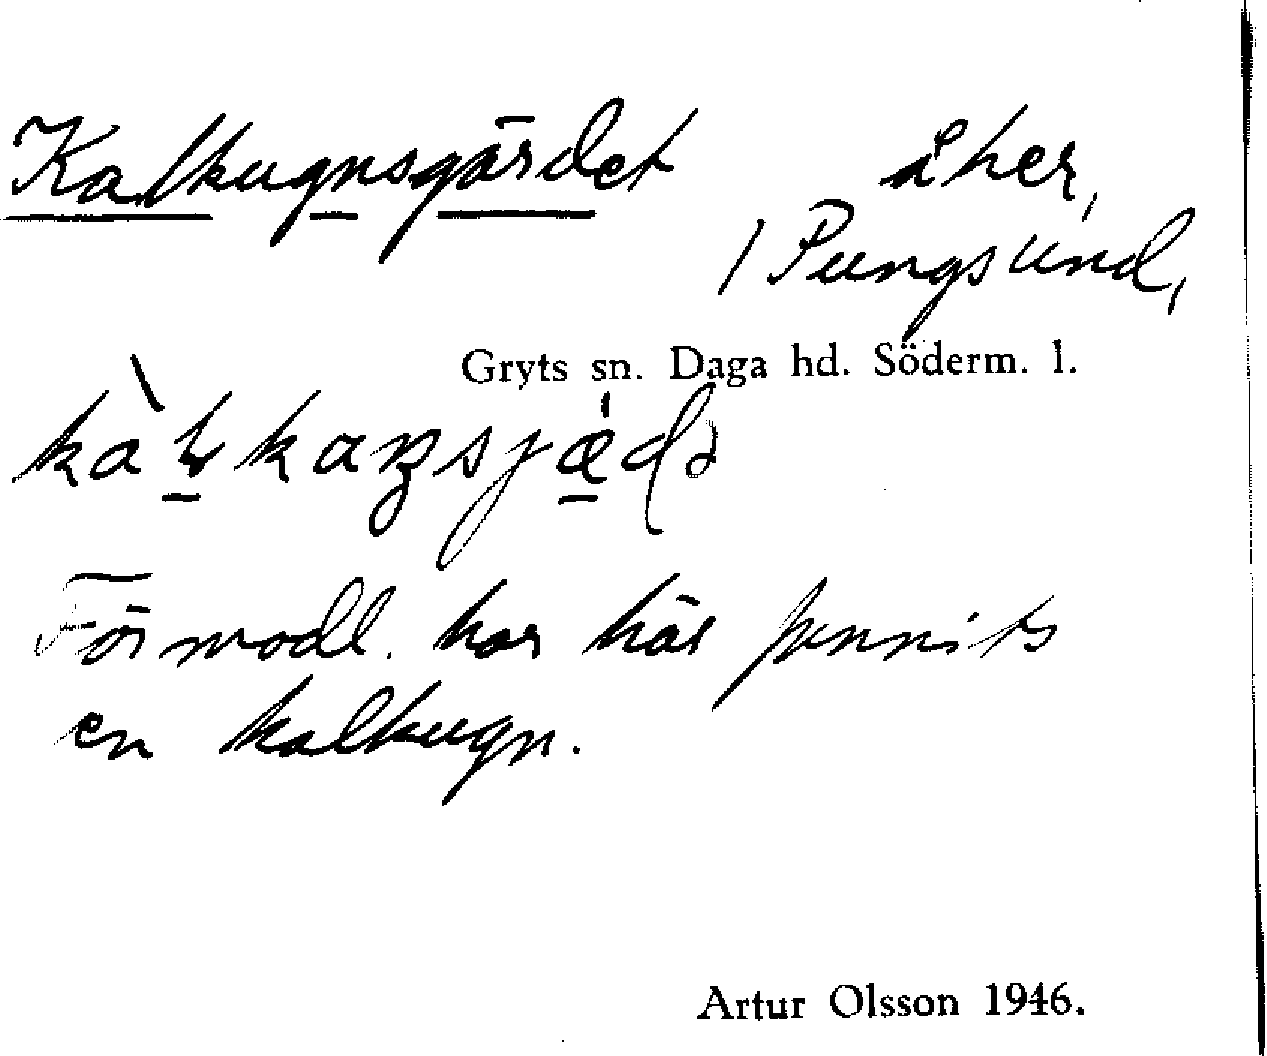 Kalkugnsgärdet åker,
/ Pungsund,
Gryts sn. Daga hd. Söderm. l.
Förmodl. har här funnits
en kalkugn.
Artur Olsson 1946.